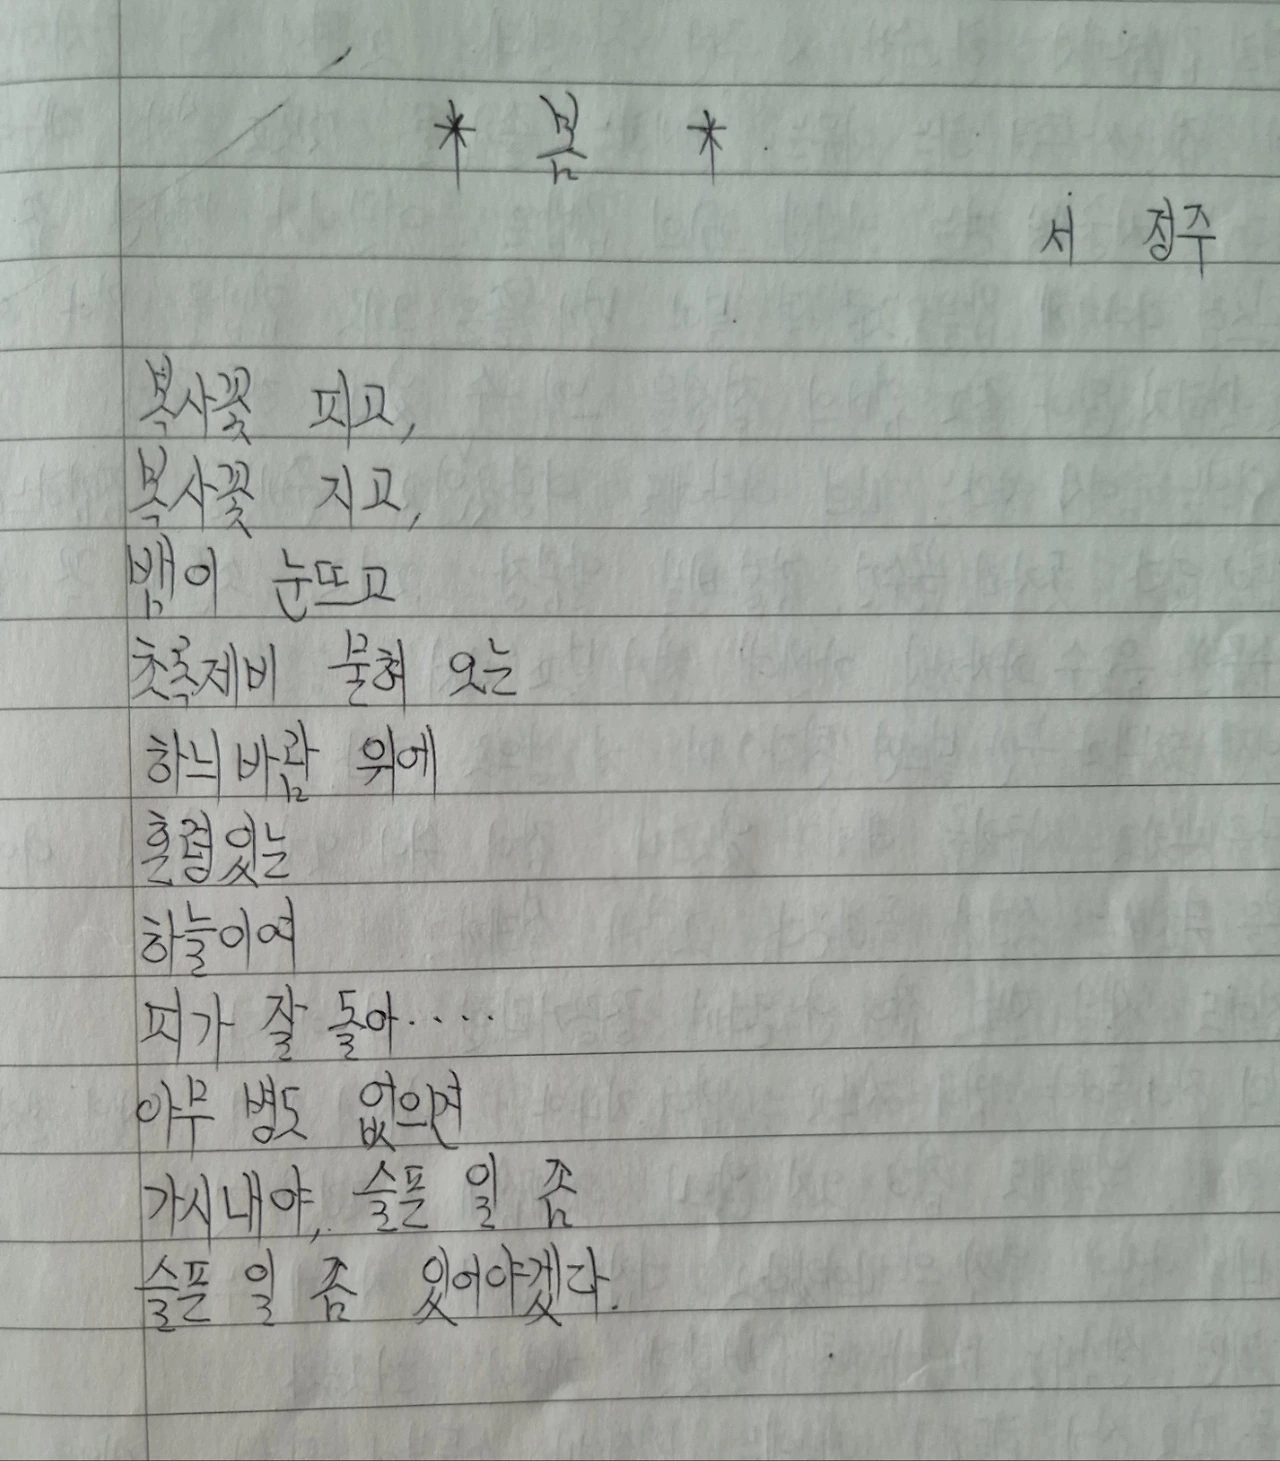 * 봄 *
서 정주
복사꽃 피고,
복사꽃 지고,
뱀이 눈뜨고
초록제비 물혀 오는
하늬바람 위에
혼령있는
하늘이여
피가 잘 돌아....
아무 병도 없으면
가시내야, 슬픈 일 좀
슬픈 일 좀 있어야겠다.